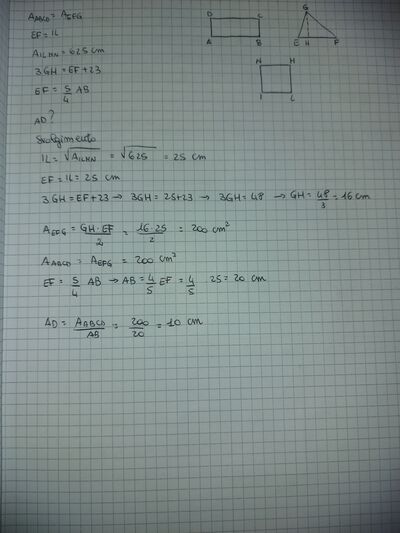 A_ABCD = A_EFG
EF = IL
A_ILMN = 625 cm
3GH = EF + 23
EF = 5/4 AB
AD?
D C
A B
G
E H F
N H
I L
Svolgimento
IL = √A_ILMN = √625 = 25 cm
EF = IL = 25 cm
3GH = EF + 23 → 3GH = 25 + 23 → 3GH = 48 → GH = 48/3 = 16 cm
A_EFG = GH · EF/2 = 16 · 25/2 = 200 cm²
A_ABCD = A_EFG = 200 cm²
EF = 5/4 AB → AB = 4/5 EF = 4/5 25 = 20 cm
AD = A_ABCD/AB = 200/20 = 10 cm